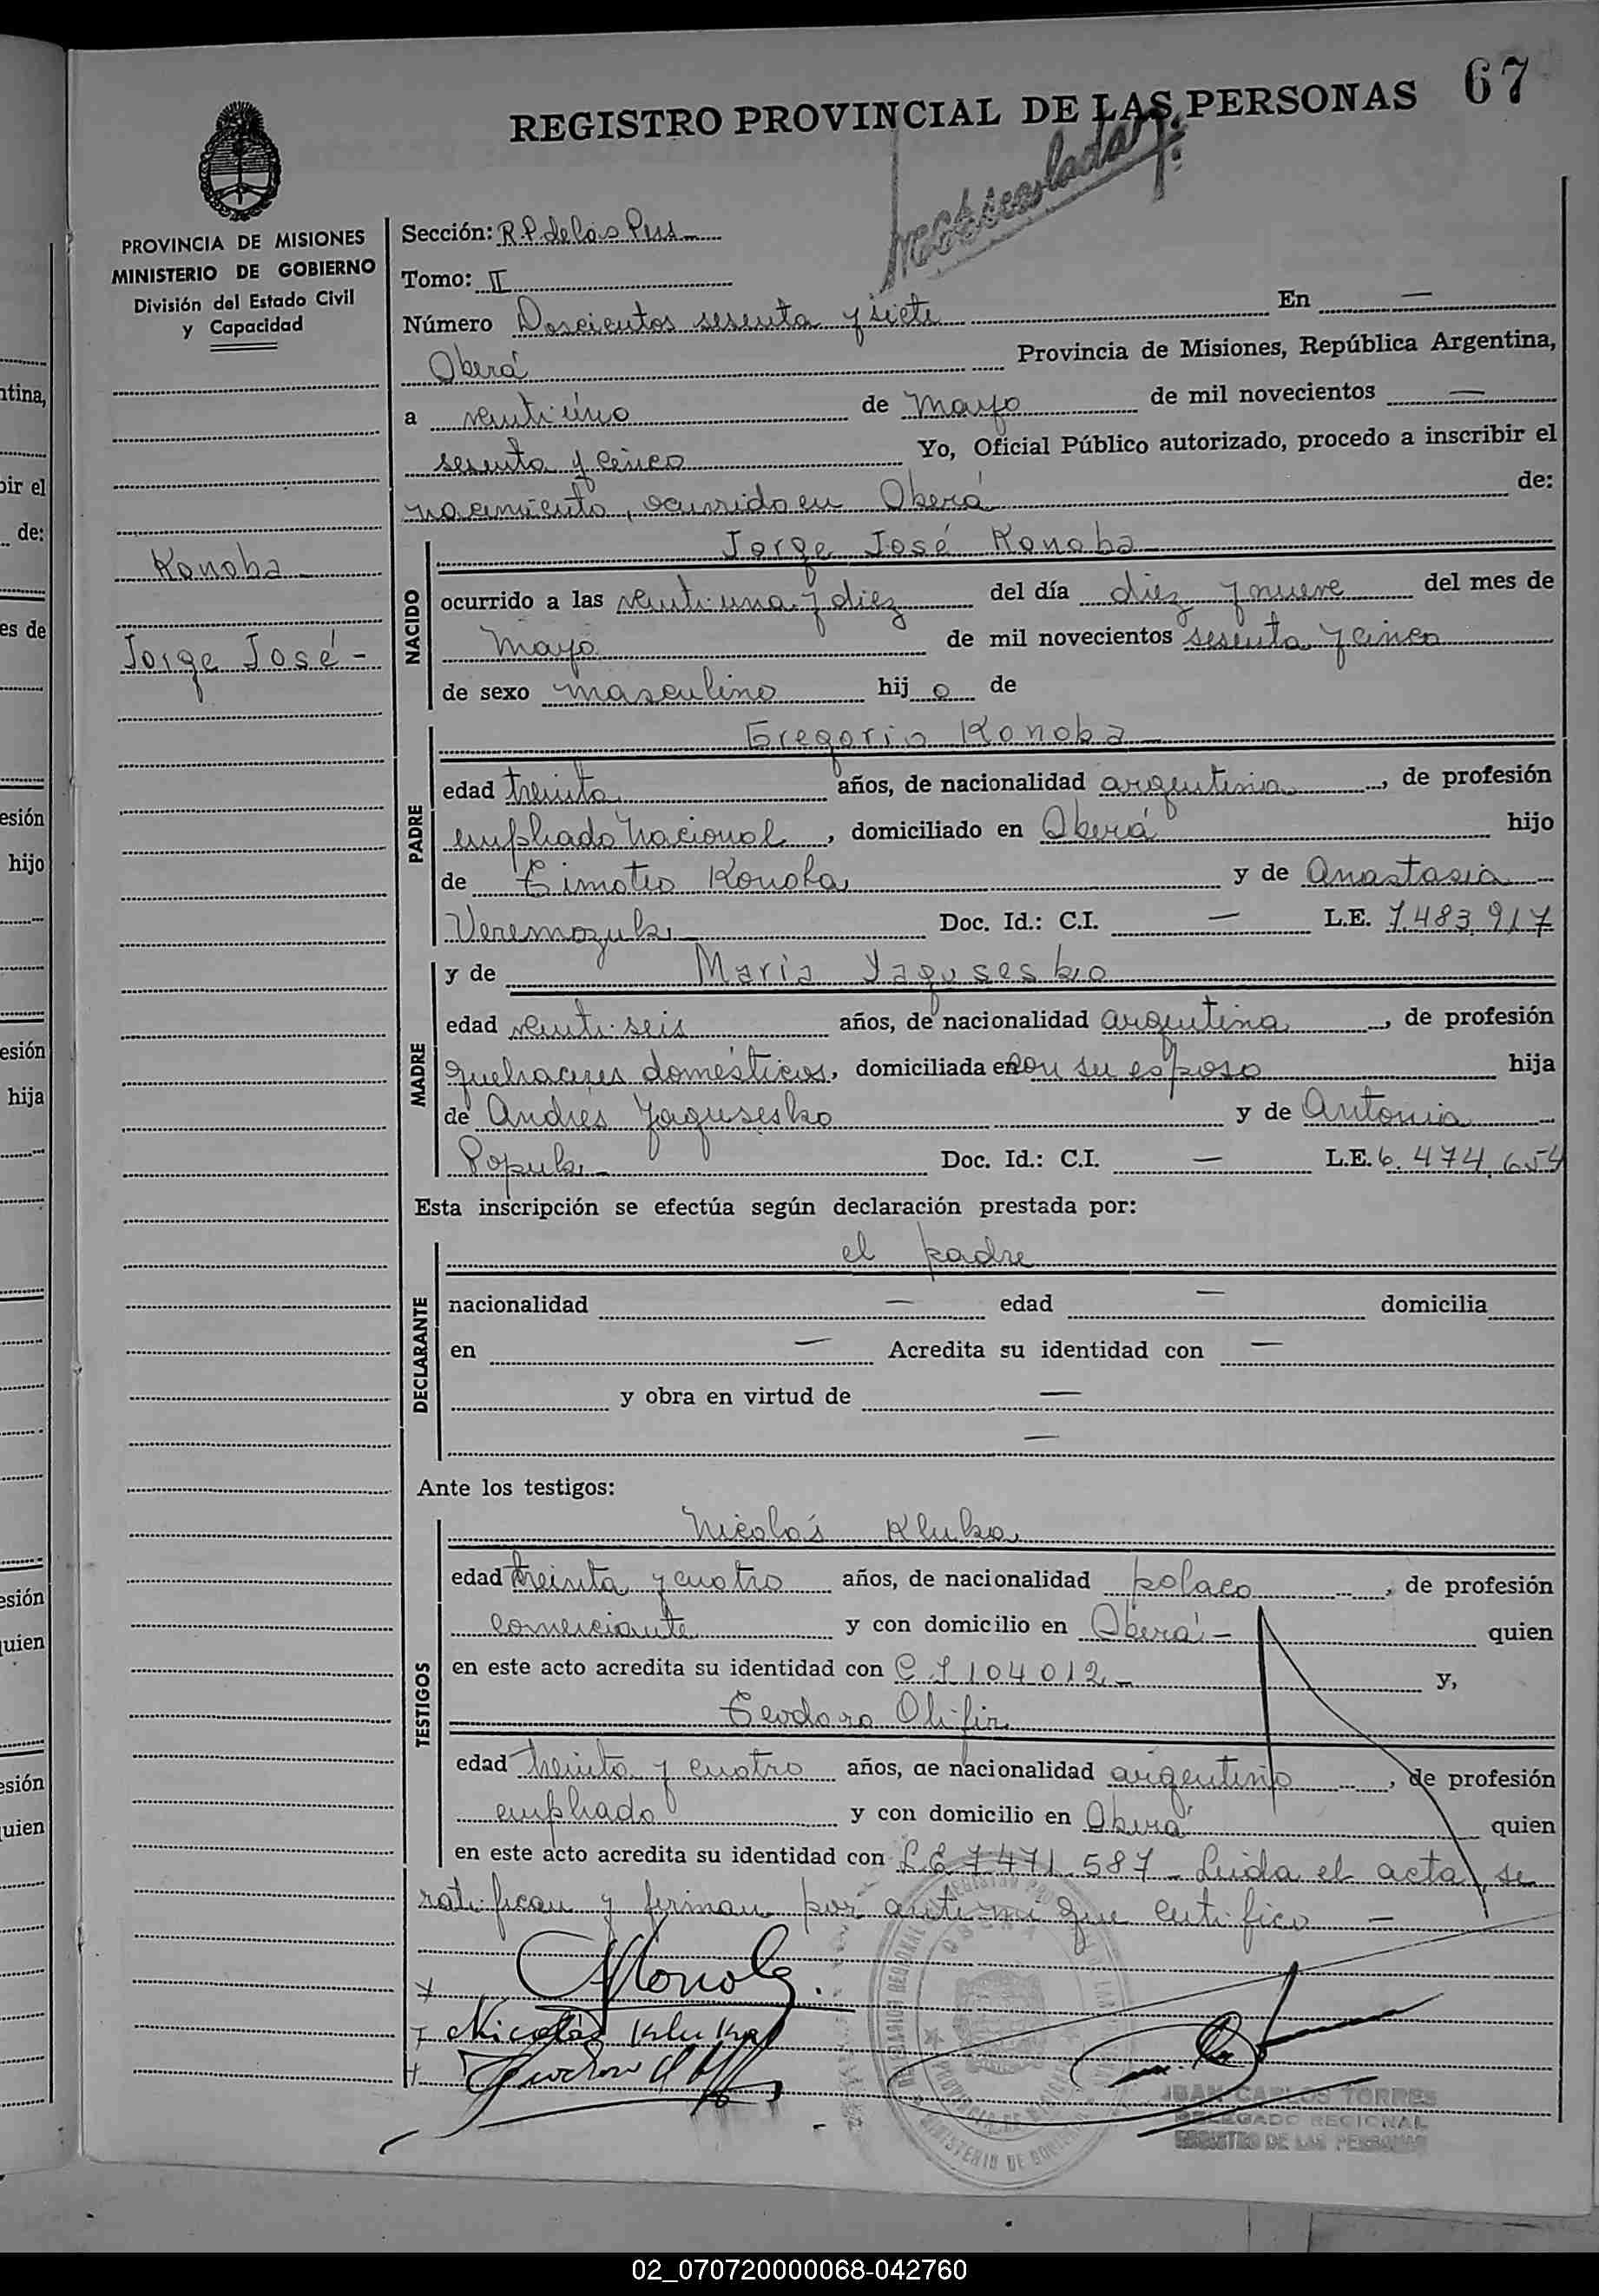 REGISTRO PROVINCIAL DE LAS PERSONAS 67
PROVINCIA DE MISIONES
MINISTERIO DE GOBIERNO
División del Estado Civil
y Capacidad
Konoba
Jorge José -
Sección: R.P. de las Pers
Tomo: II
Número Doscientos sesenta y siete En —
Oberá Provincia de Misiones, República Argentina,
a veintiúno de Mayo de mil novecientos —
sesenta y cinco Yo, Oficial Público autorizado, procedo a inscribir el
nacimiento, ocurrido en Oberá de:
NACIDO
Jorge José Konoba
ocurrido a las veintiuna y diez del día diez y nueve del mes de
Mayo de mil novecientos sesenta y cinco
de sexo masculino hijo de
PADRE
Gregorio Konoba
edad treinta años, de nacionalidad argentina, de profesión
empleado Nacional, domiciliado en Oberá hijo
de Timoteo Konoba y de Anastasia
Veremczuk Doc. Id.: C.I. — L.E. 7.483.917
MADRE
y de María Yagusesko
edad veintiseis años, de nacionalidad argentina, de profesión
quehaceres domésticos, domiciliada en con su esposo hija
de Andrés Yagusesko y de Antonia
Popuk Doc. Id.: C.I. — L.E. 6.474.654
Esta inscripción se efectúa según declaración prestada por:
DECLARANTE
el padre
nacionalidad — edad — domicilia
en — Acredita su identidad con —
y obra en virtud de —
—
Ante los testigos:
TESTIGOS
Nicolás Kluka
edad treinta y cuatro años, de nacionalidad polaco, de profesión
comerciante y con domicilio en Oberá - quien
en este acto acredita su identidad con C I 104012 - y,
Teodoro Olifir
edad treinta y cuatro años, de nacionalidad argentino, de profesión
empleado y con domicilio en Oberá quien
en este acto acredita su identidad con L E 7.471.587 - Leida el acta, se
ratifican y firman por ante mi que certifico —
Nicolás Kluka
JUAN CARLOS TORRES
DELEGADO REGIONAL
REGISTRO DE LAS PERSONAS
02_070720000068-042760